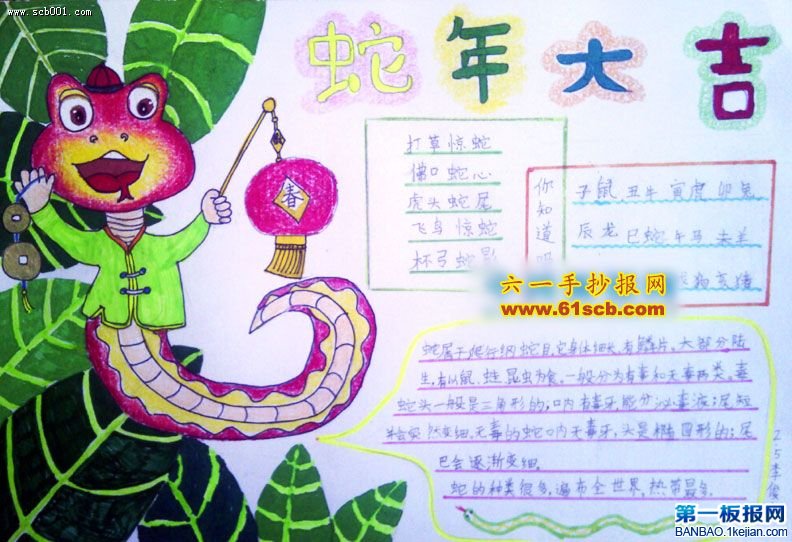 www.scb001.com
蛇年大吉
春
打草惊蛇
佛口蛇心
虎头蛇尾
飞鸟惊蛇
杯弓蛇影
你知道吗
子鼠 丑牛 寅虎 卯兔
辰龙 巳蛇 午马 未羊
戌狗 亥猪
六一手抄报网
www.61scb.com
蛇属于爬行纲蛇目,它身体细长,有鳞片,大部分陆
生,有以鼠、蛙、昆虫为食。一般分为有毒和无毒两类。毒
蛇头一般是三角形的;口内有毒牙,能分泌毒液;尾短
突然变细。无毒的蛇口内无毒牙,头是椭圆形的;尾
巴会逐渐变细。
蛇的种类很多,遍布全世界,热带最多。
2.5李俊
第一板报网
BANBAO.1kejian.com